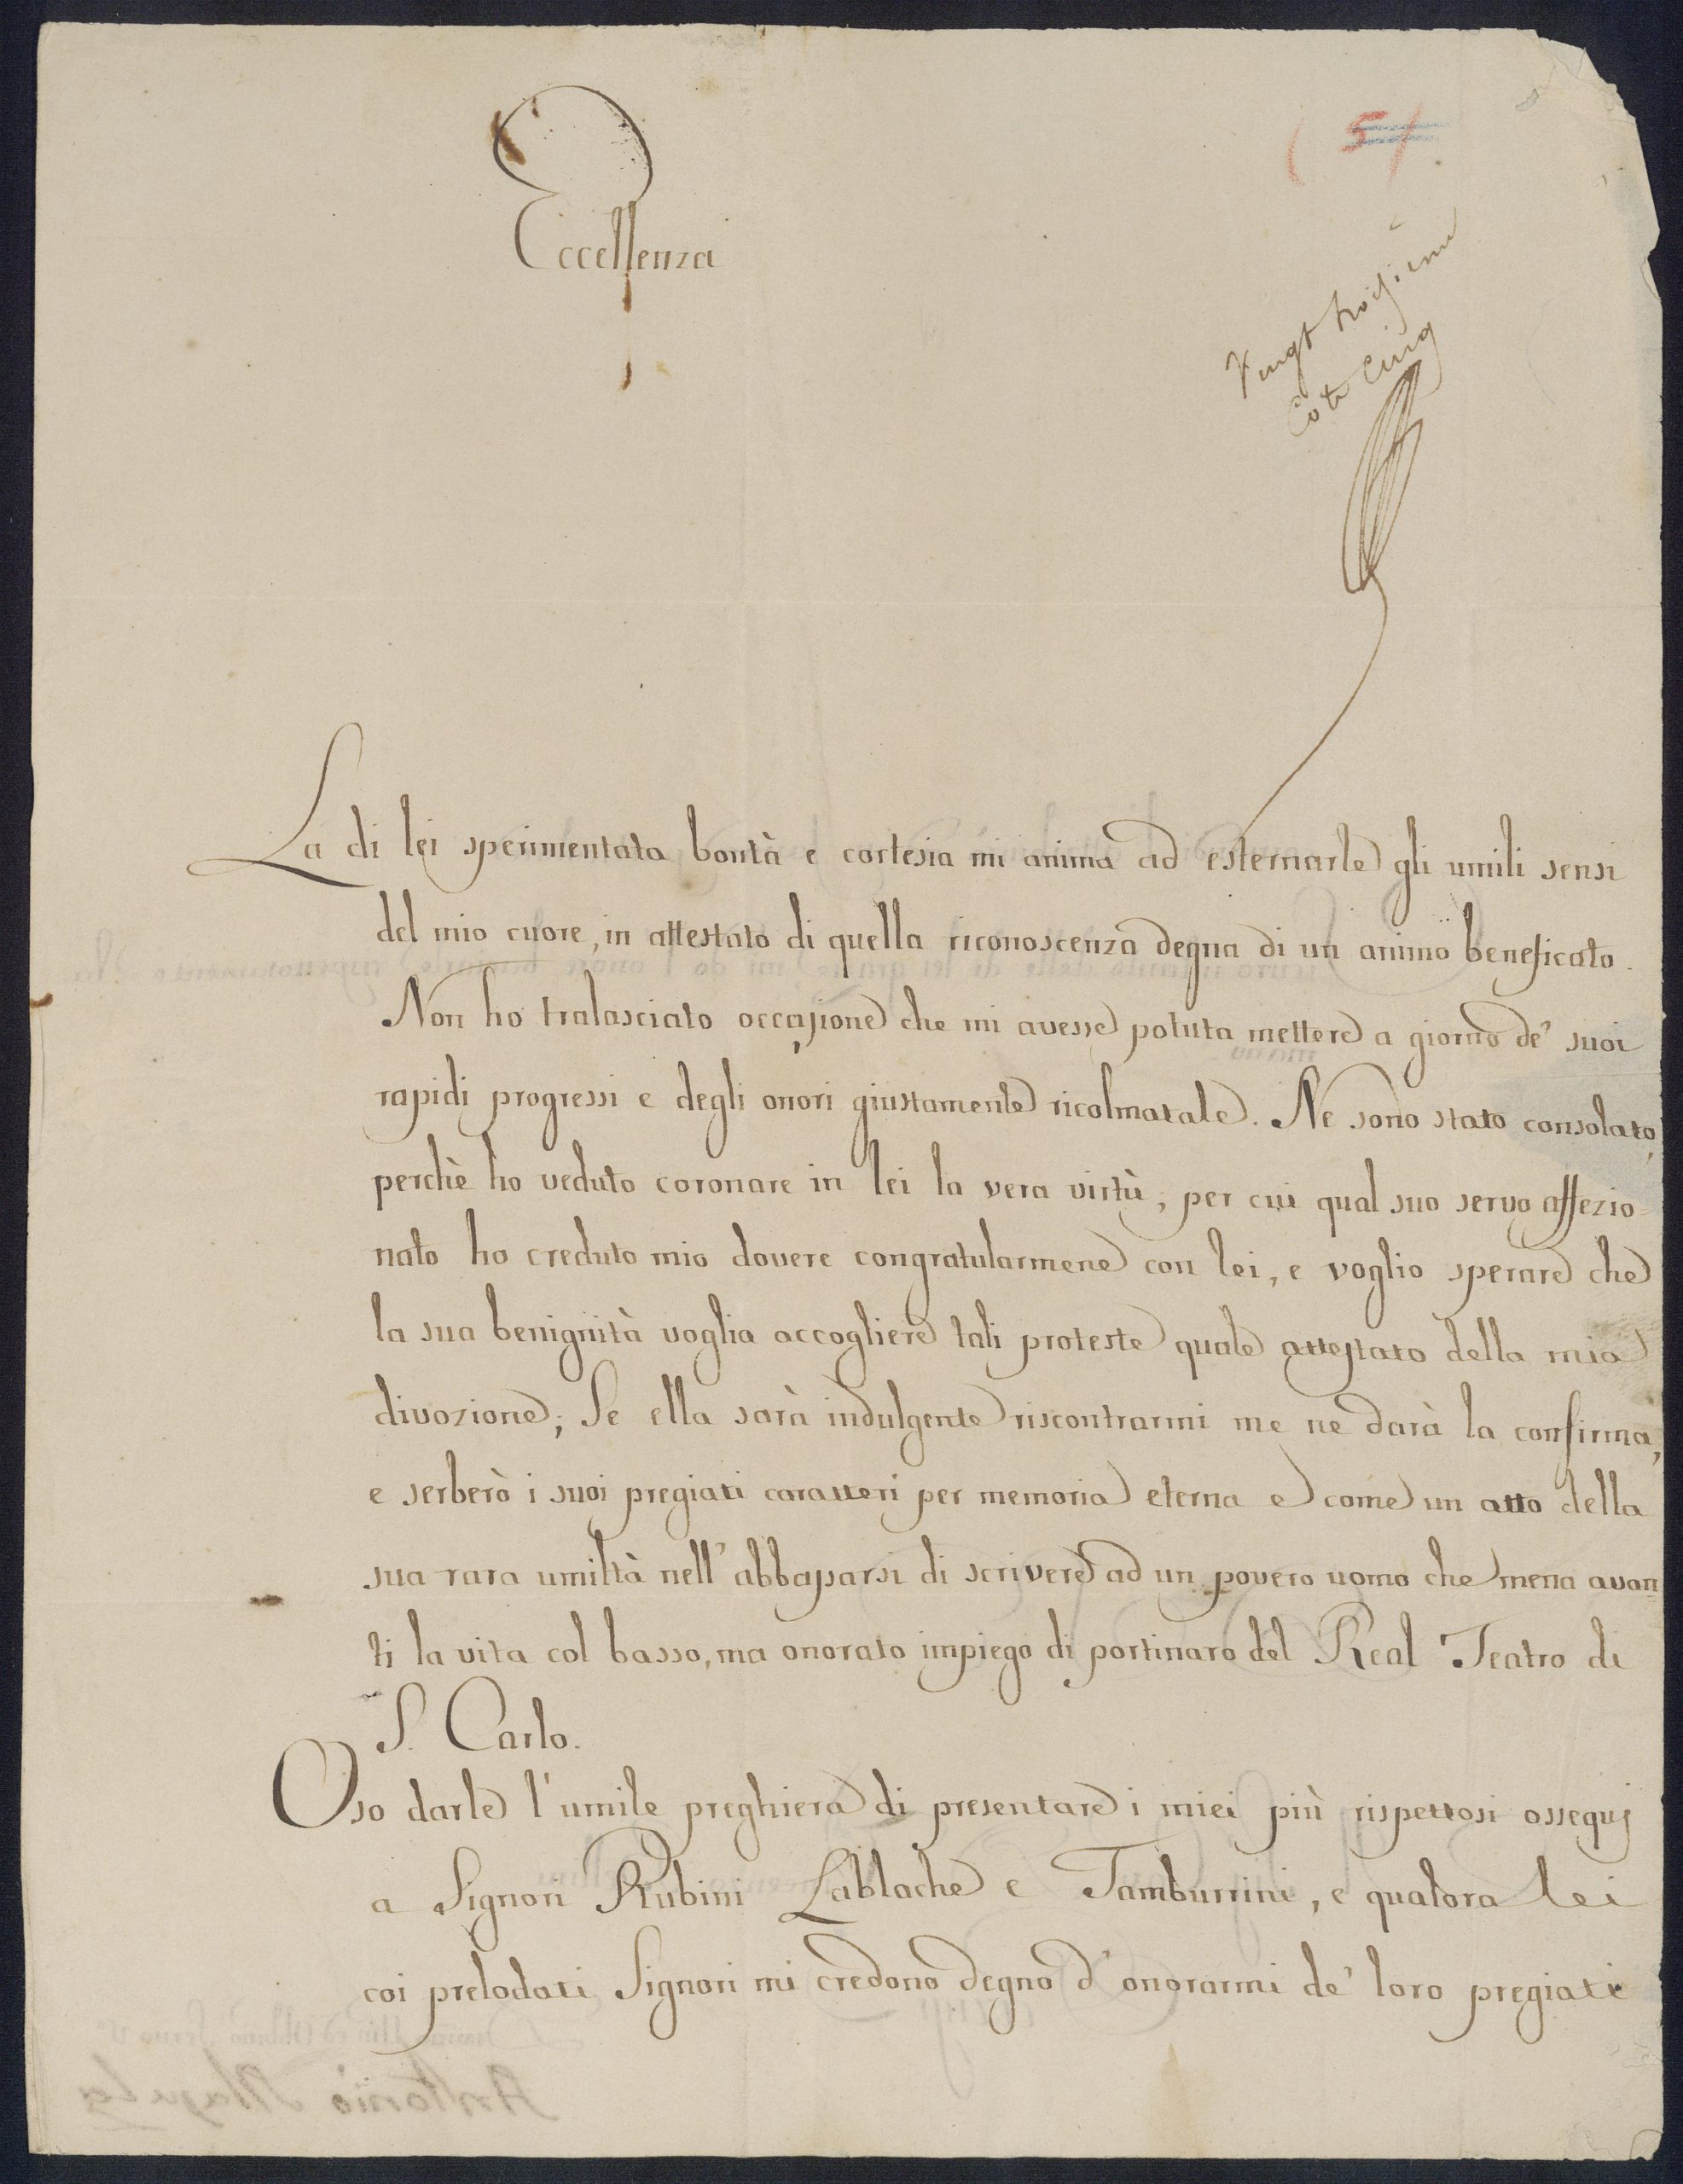 ( 5 /
Eccellenza
Vingt troisieme
Cote Cinq
La di lei sperimentata bontà e cortesia mi anima ad esternarle gli umili sensi
del mio cuore, in attestato di quella riconoscenza degna di un animo beneficato.
Non ho tralasciato occasione che mi avesse potuta mettere a giorno de' suoi
rapidi progressi e degli onori giustamente ricolmatale. Ne sono stato consolato,
perchè ho veduto coronare in lei la vera virtù; per cui qual suo servo affezio=
nato ho creduto mio dovere congratularmene con lei, e voglio sperare che
la sua benignità voglia accogliere tali proteste quale attestato della mia
divozione; Se ella sarà indulgente riscontrarmi me ne darà la confirma,
e serberò i suoi pregiati caratteri per memoria eterna e come un atto della
sua rara umiltà nell' abbassarsi di scrivere ad un povero uomo che mena avan=
ti la vita col basso, ma onorato impiego di portinaro del Real Teatro di
S. Carlo.
Oso darle l'umile preghiera di presentare i miei più rispettosi ossequj
a Signori Rubini Lablache e Tamburrini, e qualora lei
coi prelodati Signori mi credono degno d' onorarmi de' loro pregiati